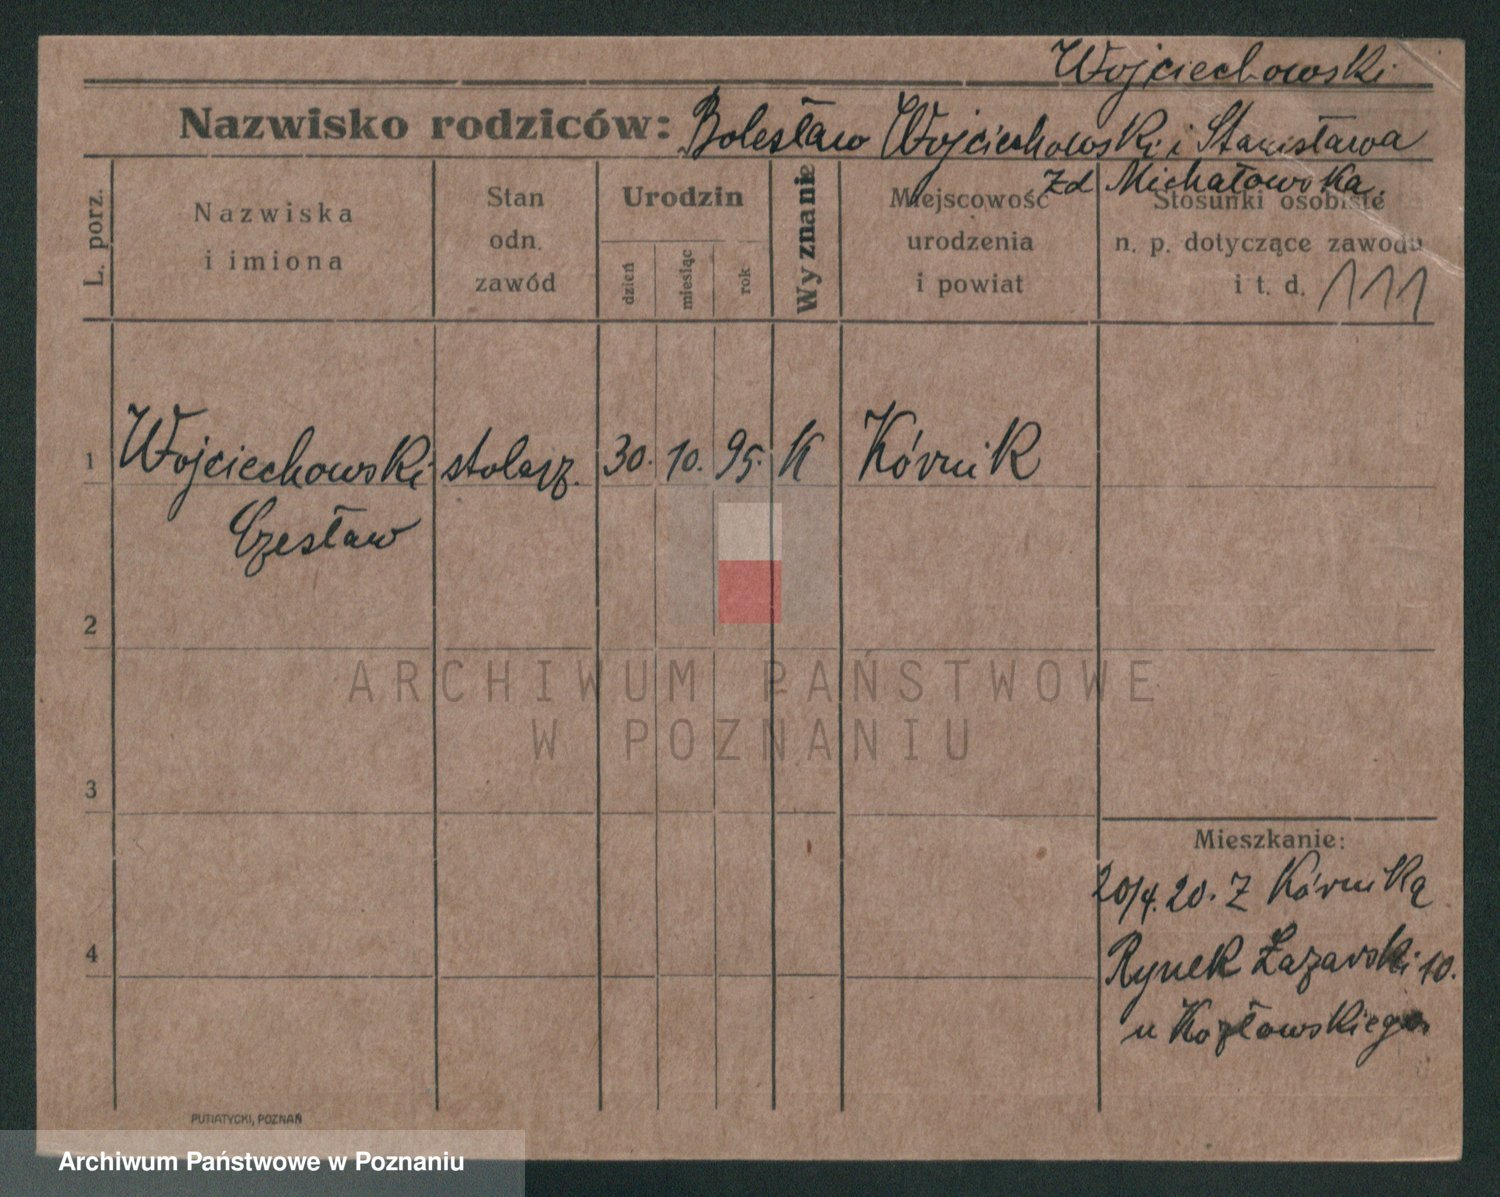 Wojciechowski
Nazwisko rodziców: Bolesław Wojciechowski i Stanisława
zd Michałowska.
L. porz.
Nazwiska
i imiona
Stan
odn.
zawód
Urodzin
dzień
miesiąc
rok
Wyznanie
Miejscowość
urodzenia
i powiat
Stosunki osobiste
n. p. dotyczące zawodu
i t. d. 111
1 Wojciechowski stolarz. 30. 10. 95. K Kórnik
Czesław
2
ARCHIWUM PAŃSTWOWE
W POZNANIU
3
Mieszkanie:
20/4. 20. Z Kórnika
4
Rynek Łazarski 10.
u Kozłowskiego
PUTIATYCKI, POZNAŃ
Archiwum Państwowe w Poznaniu